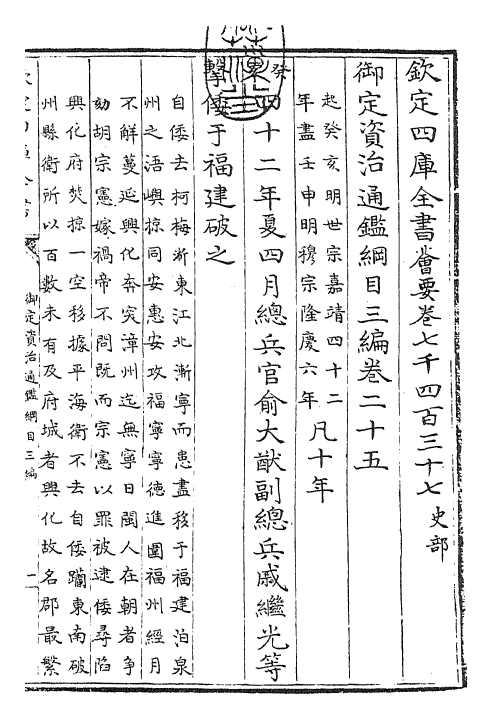 欽定四庫全書薈要卷七千四百三十七史部
御定資治通鑑綱目三編卷二十五
起癸亥明世宗嘉靖四十二
年盡壬申明穆宗隆慶六年
凡十年
癸亥
四十二年夏四月總兵官俞大猷副總兵戚繼光等
擊倭于福建破之
自倭去柯梅浙東江北漸寧而患盡移于福建泊泉
州之浯嶼掠同安惠安攻福寧寧德進圍福州經月
不解蔓延興化奔突漳州迄無寧日閩人在朝者爭
劾胡宗憲嫁禍帝不問既而宗憲以罪被逮倭尋陷
興化府焚掠一空移據平海衛不去自倭躪東南破
州縣衛所以百數未有及府城者興化故名郡最繁
御定資治通鑑綱目三編
一